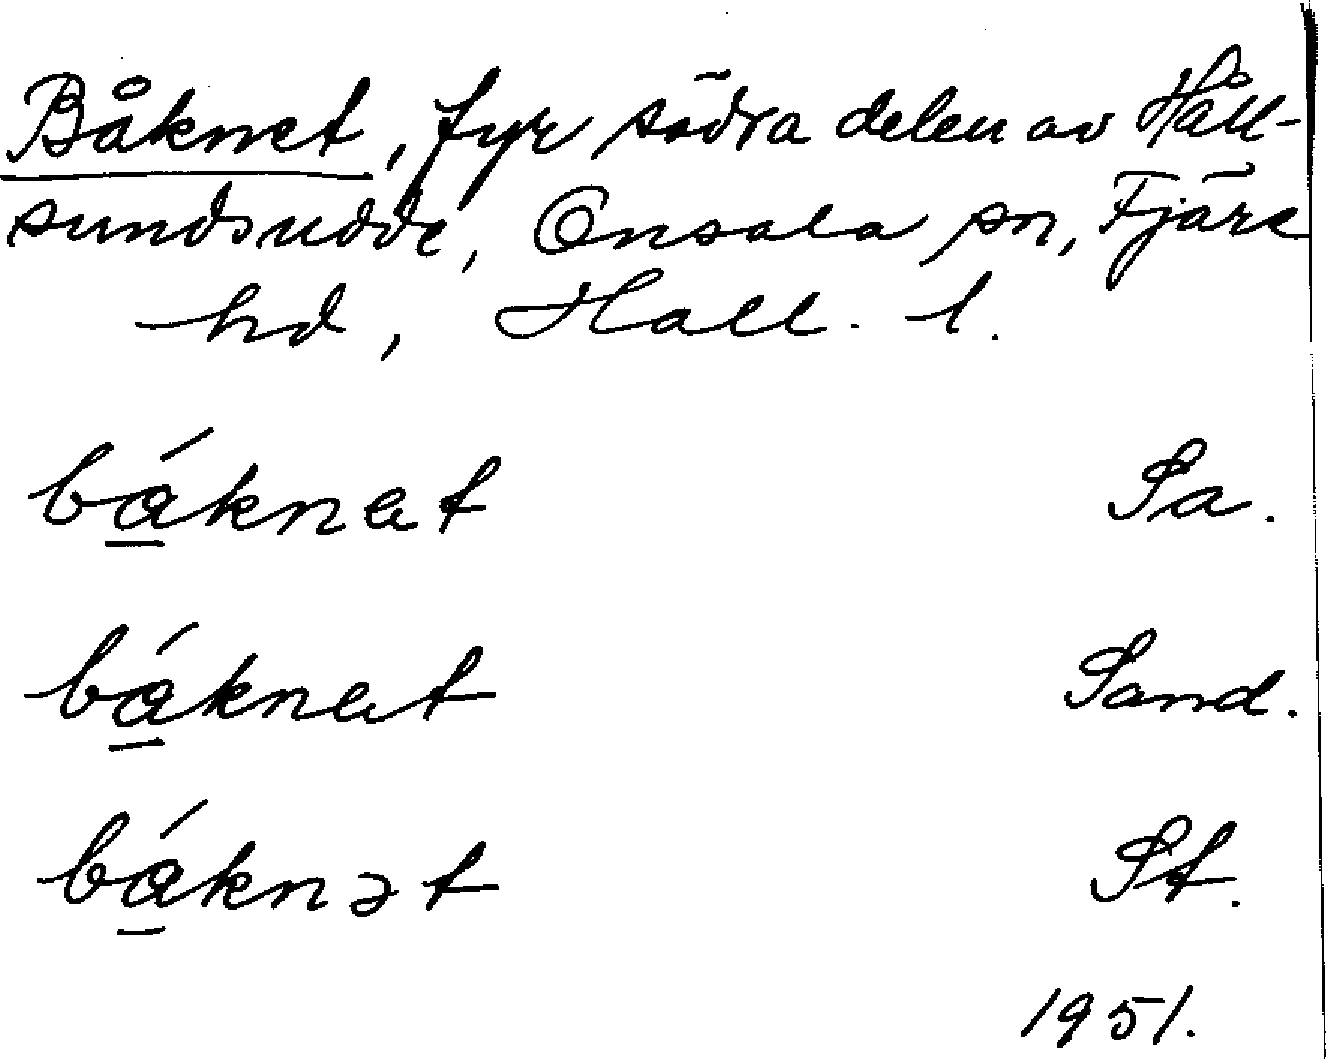 Båknet, fyr södra delen av Håll-
sundsudde, Onsala sn, Fjäre
hd, Hall. l.
bá̱knet Sa.
bá̱knet Sand.
bá̱knət St.
1951.